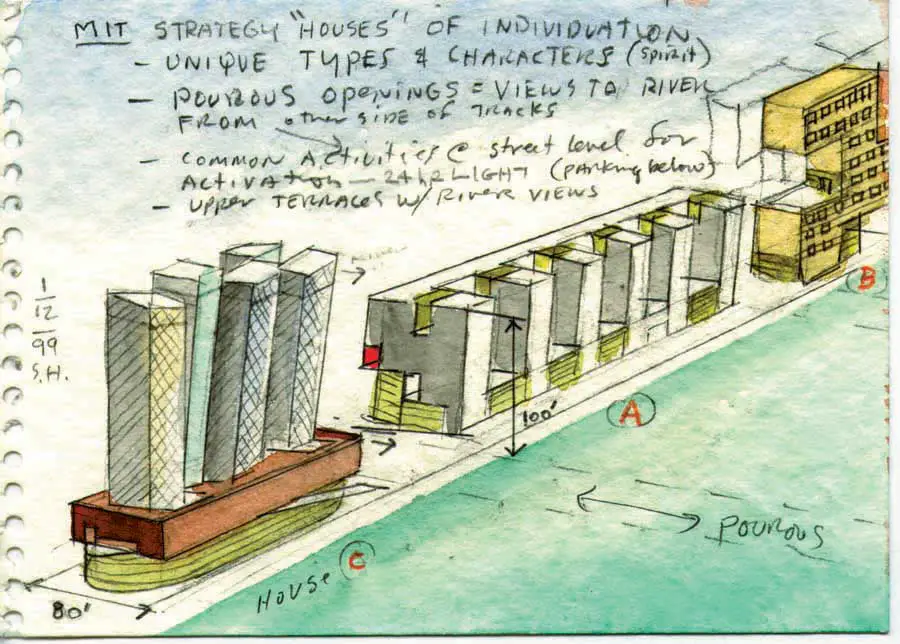 MIT STRATEGY "HOUSES" OF INDIVIDUATION
- UNIQUE TYPES & CHARACTERS (spirit)
- POUROUS OPENINGS = VIEWS TO RIVER
FROM other SIDE OF TRACKS
- COMMON ACTIVITIES @ street level for
ACTIVATION — 24 hr LIGHT (parking below)
- UPPER TERRACES W/ RIVER VIEWS
1
12
99
S.H.
B
A
100'
POUROUS
HOUSE C
80'